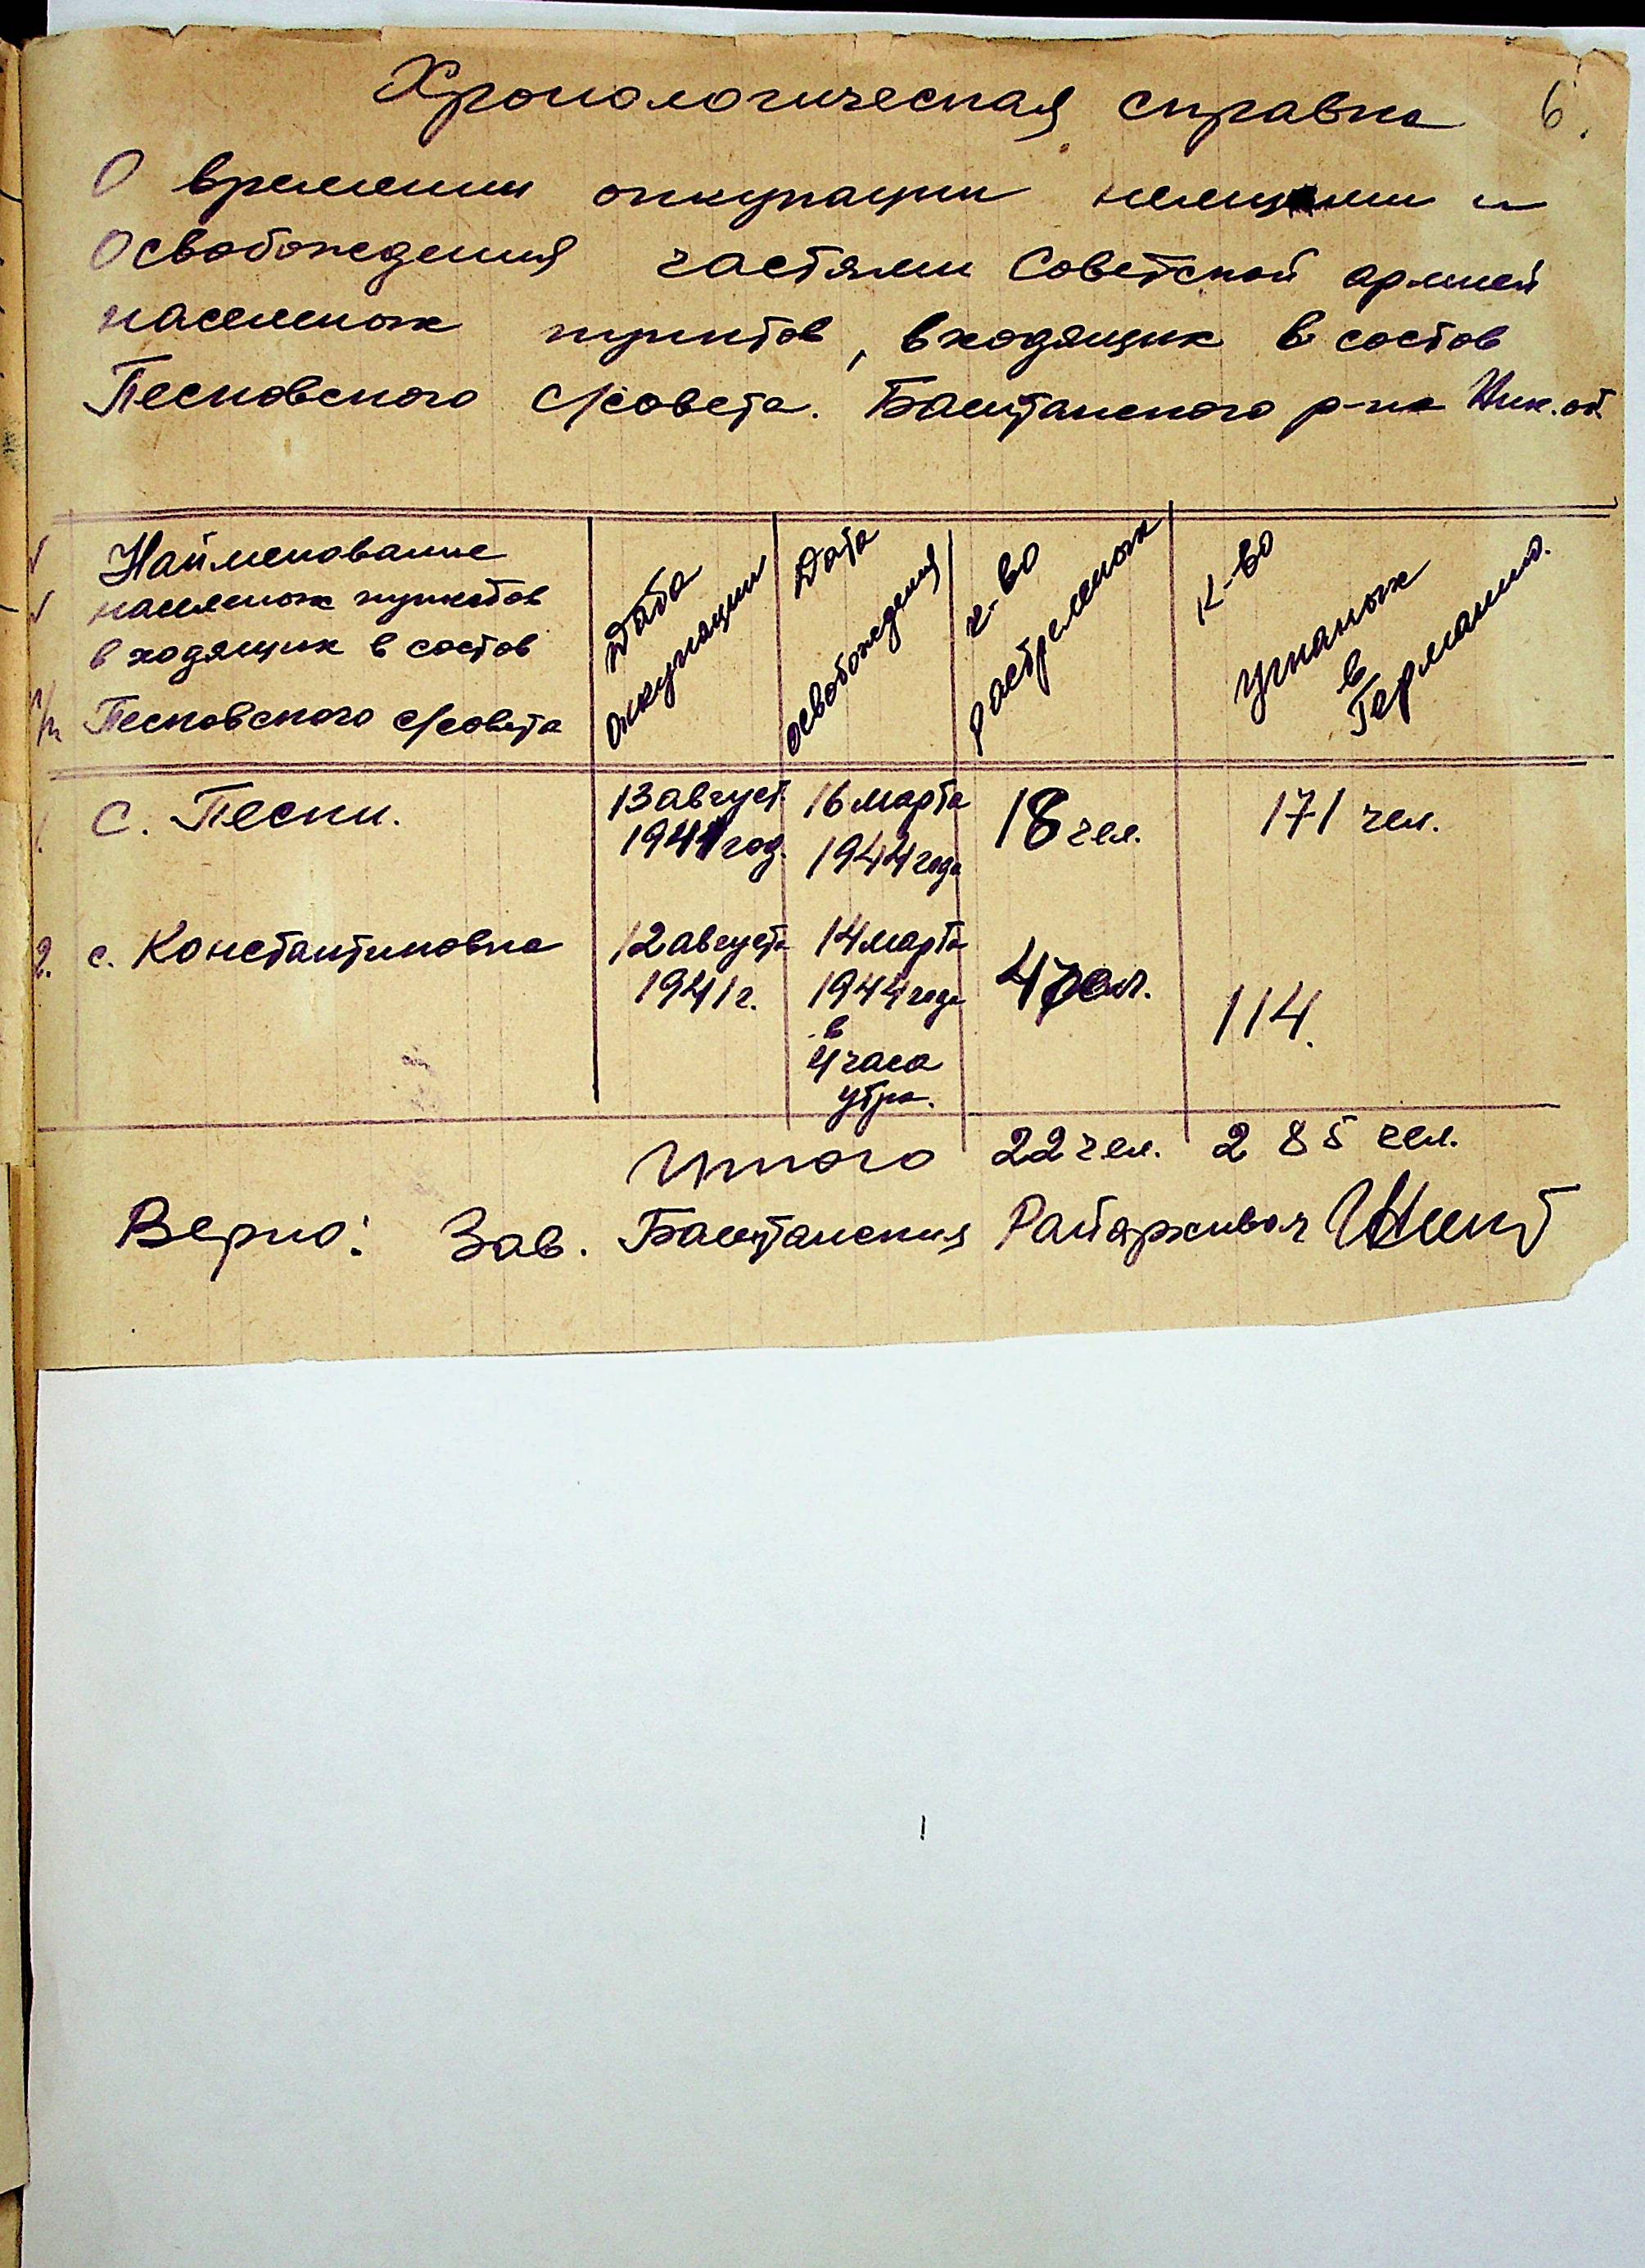 Хронологическая справка 6.
О времении оккупации немцами и
Освобождения частями Советской армией
населеных пунктов, входящих в состов
Песковского с/совета. Баштанского р-на Ник. об.
Найменование
населеных пунктов
входящих в состов
Песковского с/совета
Дата
оккупации
Дата
освобождения
к-во
растреленых
к-во
угнаных
в
Германию.
1. С. Пески. 13 август. 1941 год. 16 марта 1944 года 18 чел. 171 чел.
2. с. Константиновка 12 августа 1941 г. 14 марта 1944 года в 4 часа утра. 4 чел. 114.
Итого 22 чел. 285 чел.
Верно: Зав. Баштанския Райархивом